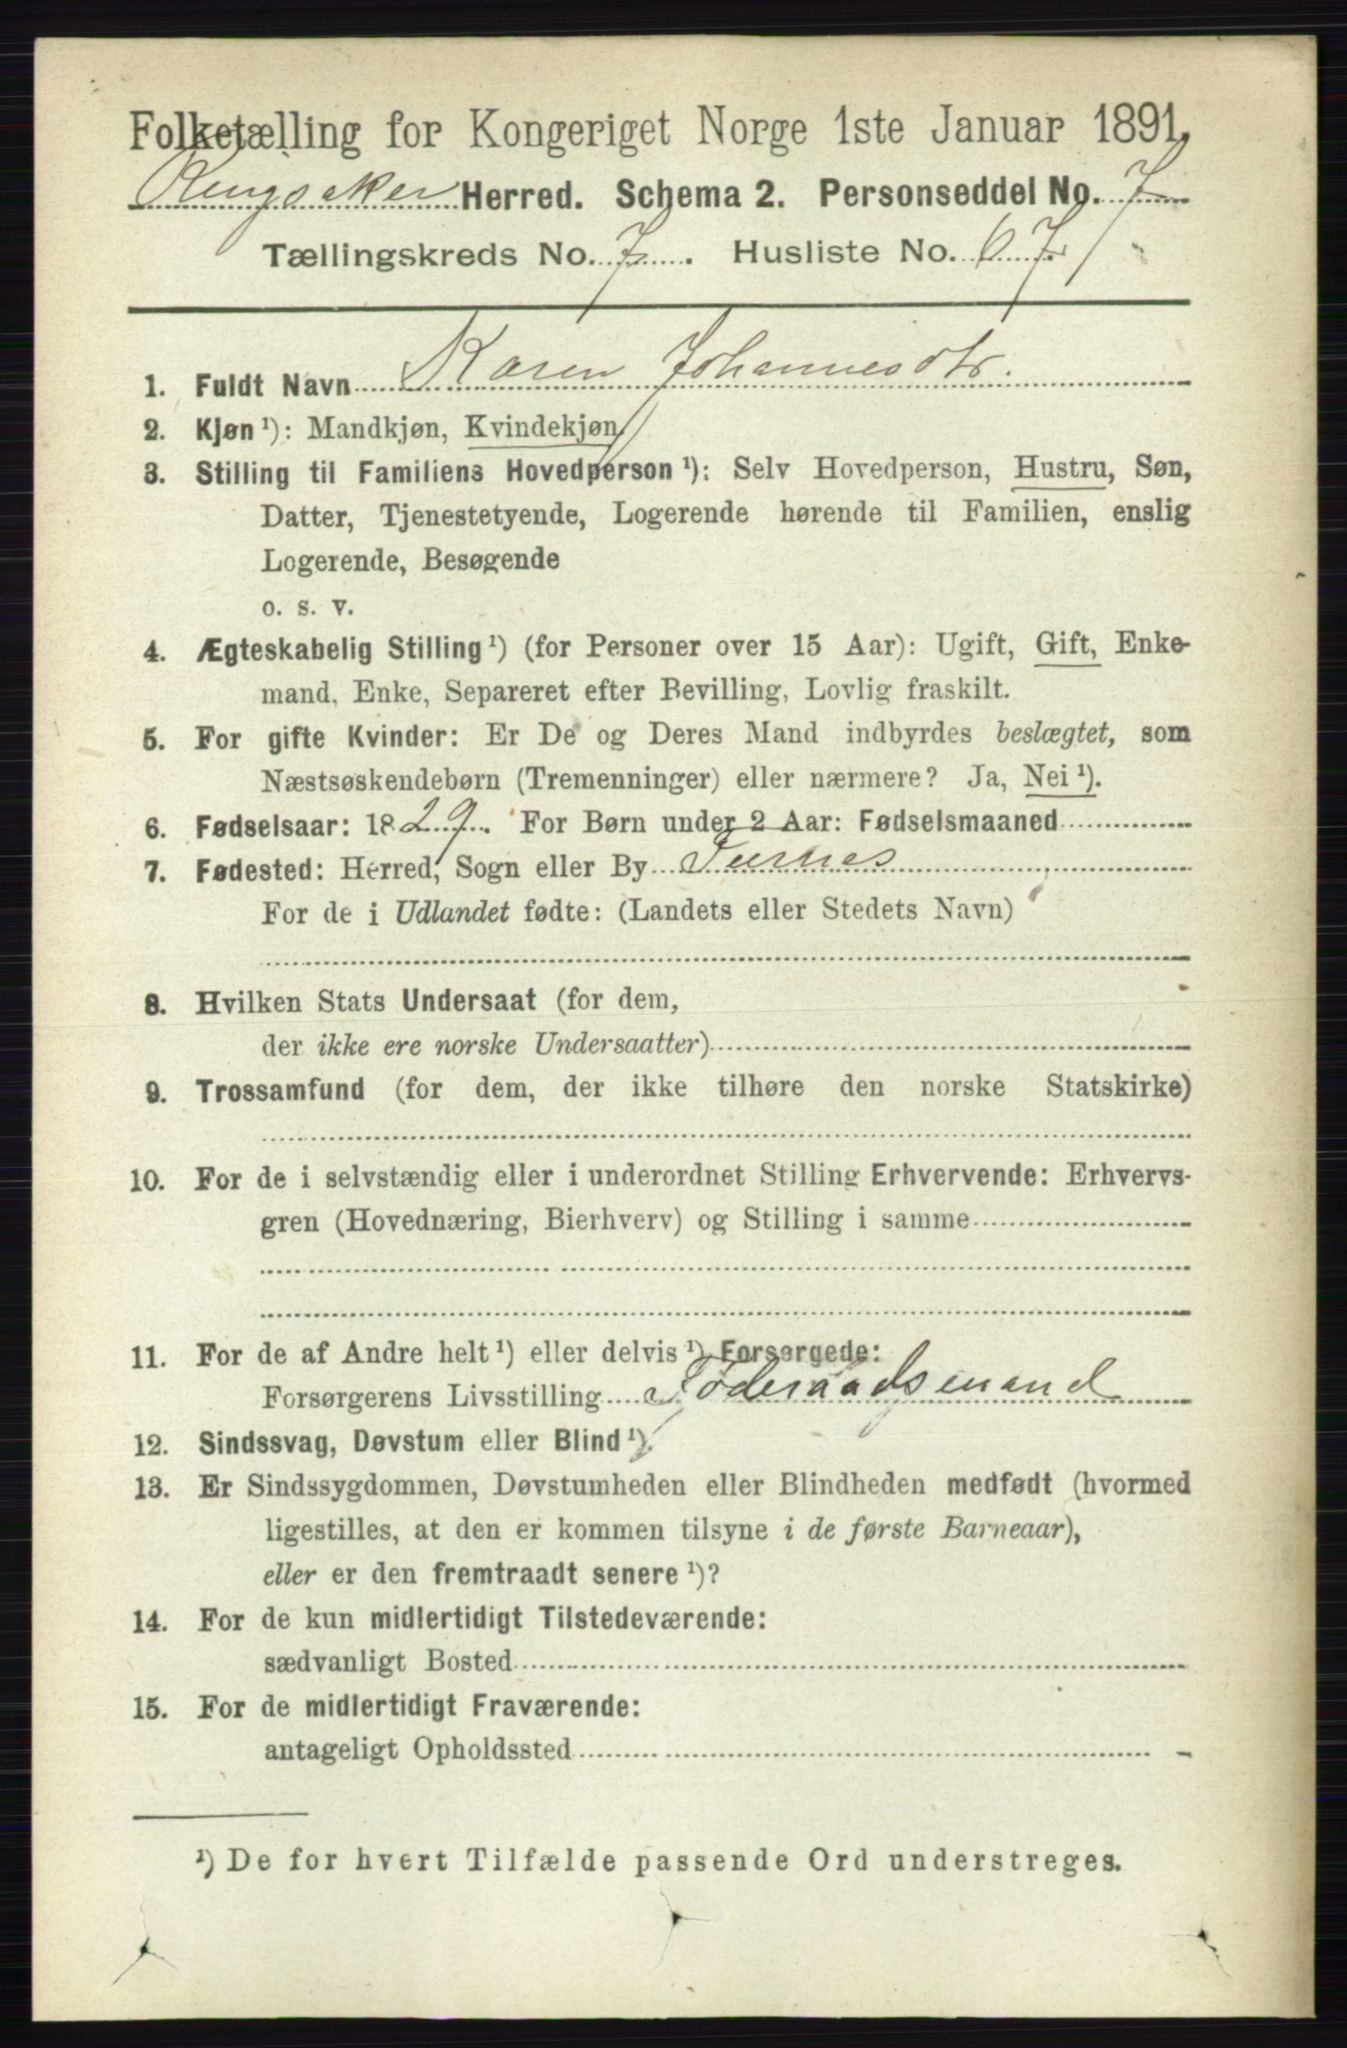 Folketælling for Kongeriget Norge 1ste Januar 1891.
Ringsaker Herred. Schema 2. Personseddel No. 7
Tællingskreds No. 7. Husliste No. 67.
1. Fuldt Navn Karen Johannesdtr.
2. Kjøn ¹): Mandkjøn, Kvindekjøn.
3. Stilling til Familiens Hovedperson ¹): Selv Hovedperson, Hustru, Søn,
Datter, Tjenestetyende, Logerende hørende til Familien, enslig
Logerende, Besøgende
o. s. v.
4. Ægteskabelig Stilling ¹) (for Personer over 15 Aar): Ugift, Gift, Enke-
mand, Enke, Separeret efter Bevilling, Lovlig fraskilt.
5. For gifte Kvinder: Er De og Deres Mand indbyrdes beslægtet, som
Næstsøskendebørn (Tremenninger) eller nærmere? Ja, Nei ¹).
6. Fødselsaar: 1829. For Børn under 2 Aar: Fødselsmaaned
7. Fødested: Herred, Sogn eller By Furnes
For de i Udlandet fødte: (Landets eller Stedets Navn)
8. Hvilken Stats Undersaat (for dem,
der ikke ere norske Undersaatter)
9. Trossamfund (for dem, der ikke tilhøre den norske Statskirke)
10. For de i selvstændig eller i underordnet Stilling Erhvervende: Erhvervs-
gren (Hovednæring, Bierhverv) og Stilling i samme
11. For de af Andre helt ¹) eller delvis ¹) Forsørgede:
Forsørgerens Livsstilling Føderaadsmand
12. Sindssvag, Døvstum eller Blind ¹).
13. Er Sindssygdommen, Døvstumheden eller Blindheden medfødt (hvormed
ligestilles, at den er kommen tilsyne i de første Barneaar),
eller er den fremtraadt senere ¹)?
14. For de kun midlertidigt Tilstedeværende:
sædvanligt Bosted
15. For de midlertidigt Fraværende:
antageligt Opholdssted
¹) De for hvert Tilfælde passende Ord understreges.